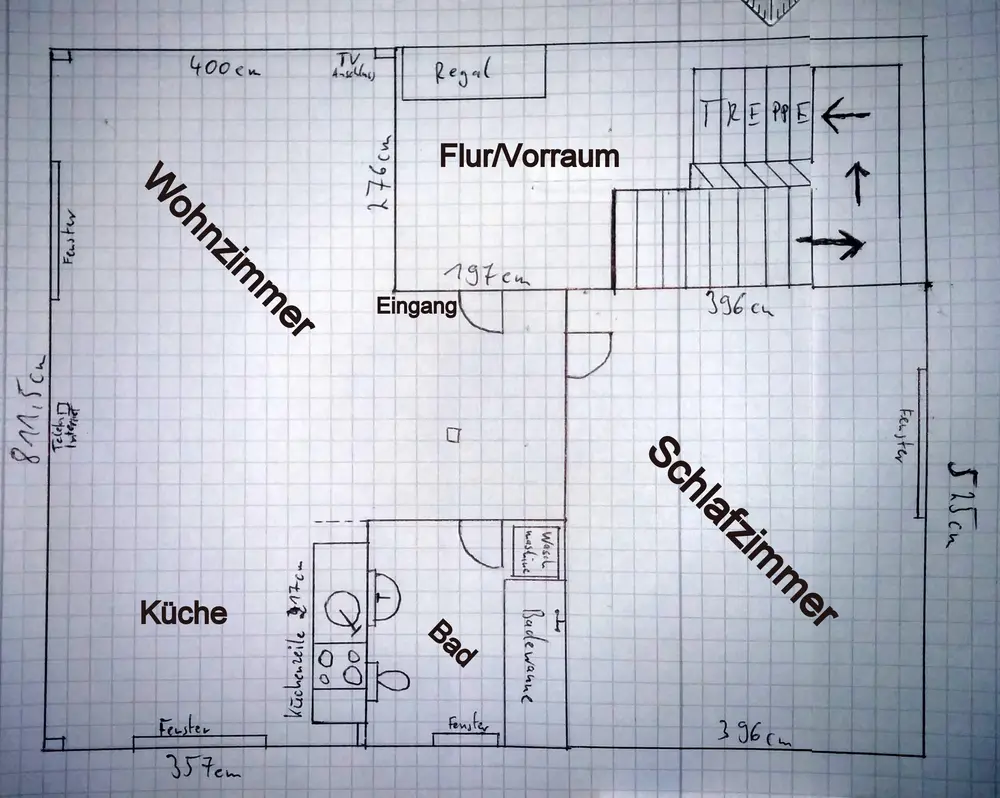 400cm
TV
Anschluss
Regal
TREPPE
276cm
Flur/Vorraum
Wohnzimmer
Fenster
197cm
Eingang
396cm
811,5cm
Telefon
Internet
Fenster
525cm
Schlafzimmer
Wasch
maschine
Küche
Küchenzeile 217cm
T
Bad
Badewanne
Fenster
Fenster
396cm
357cm